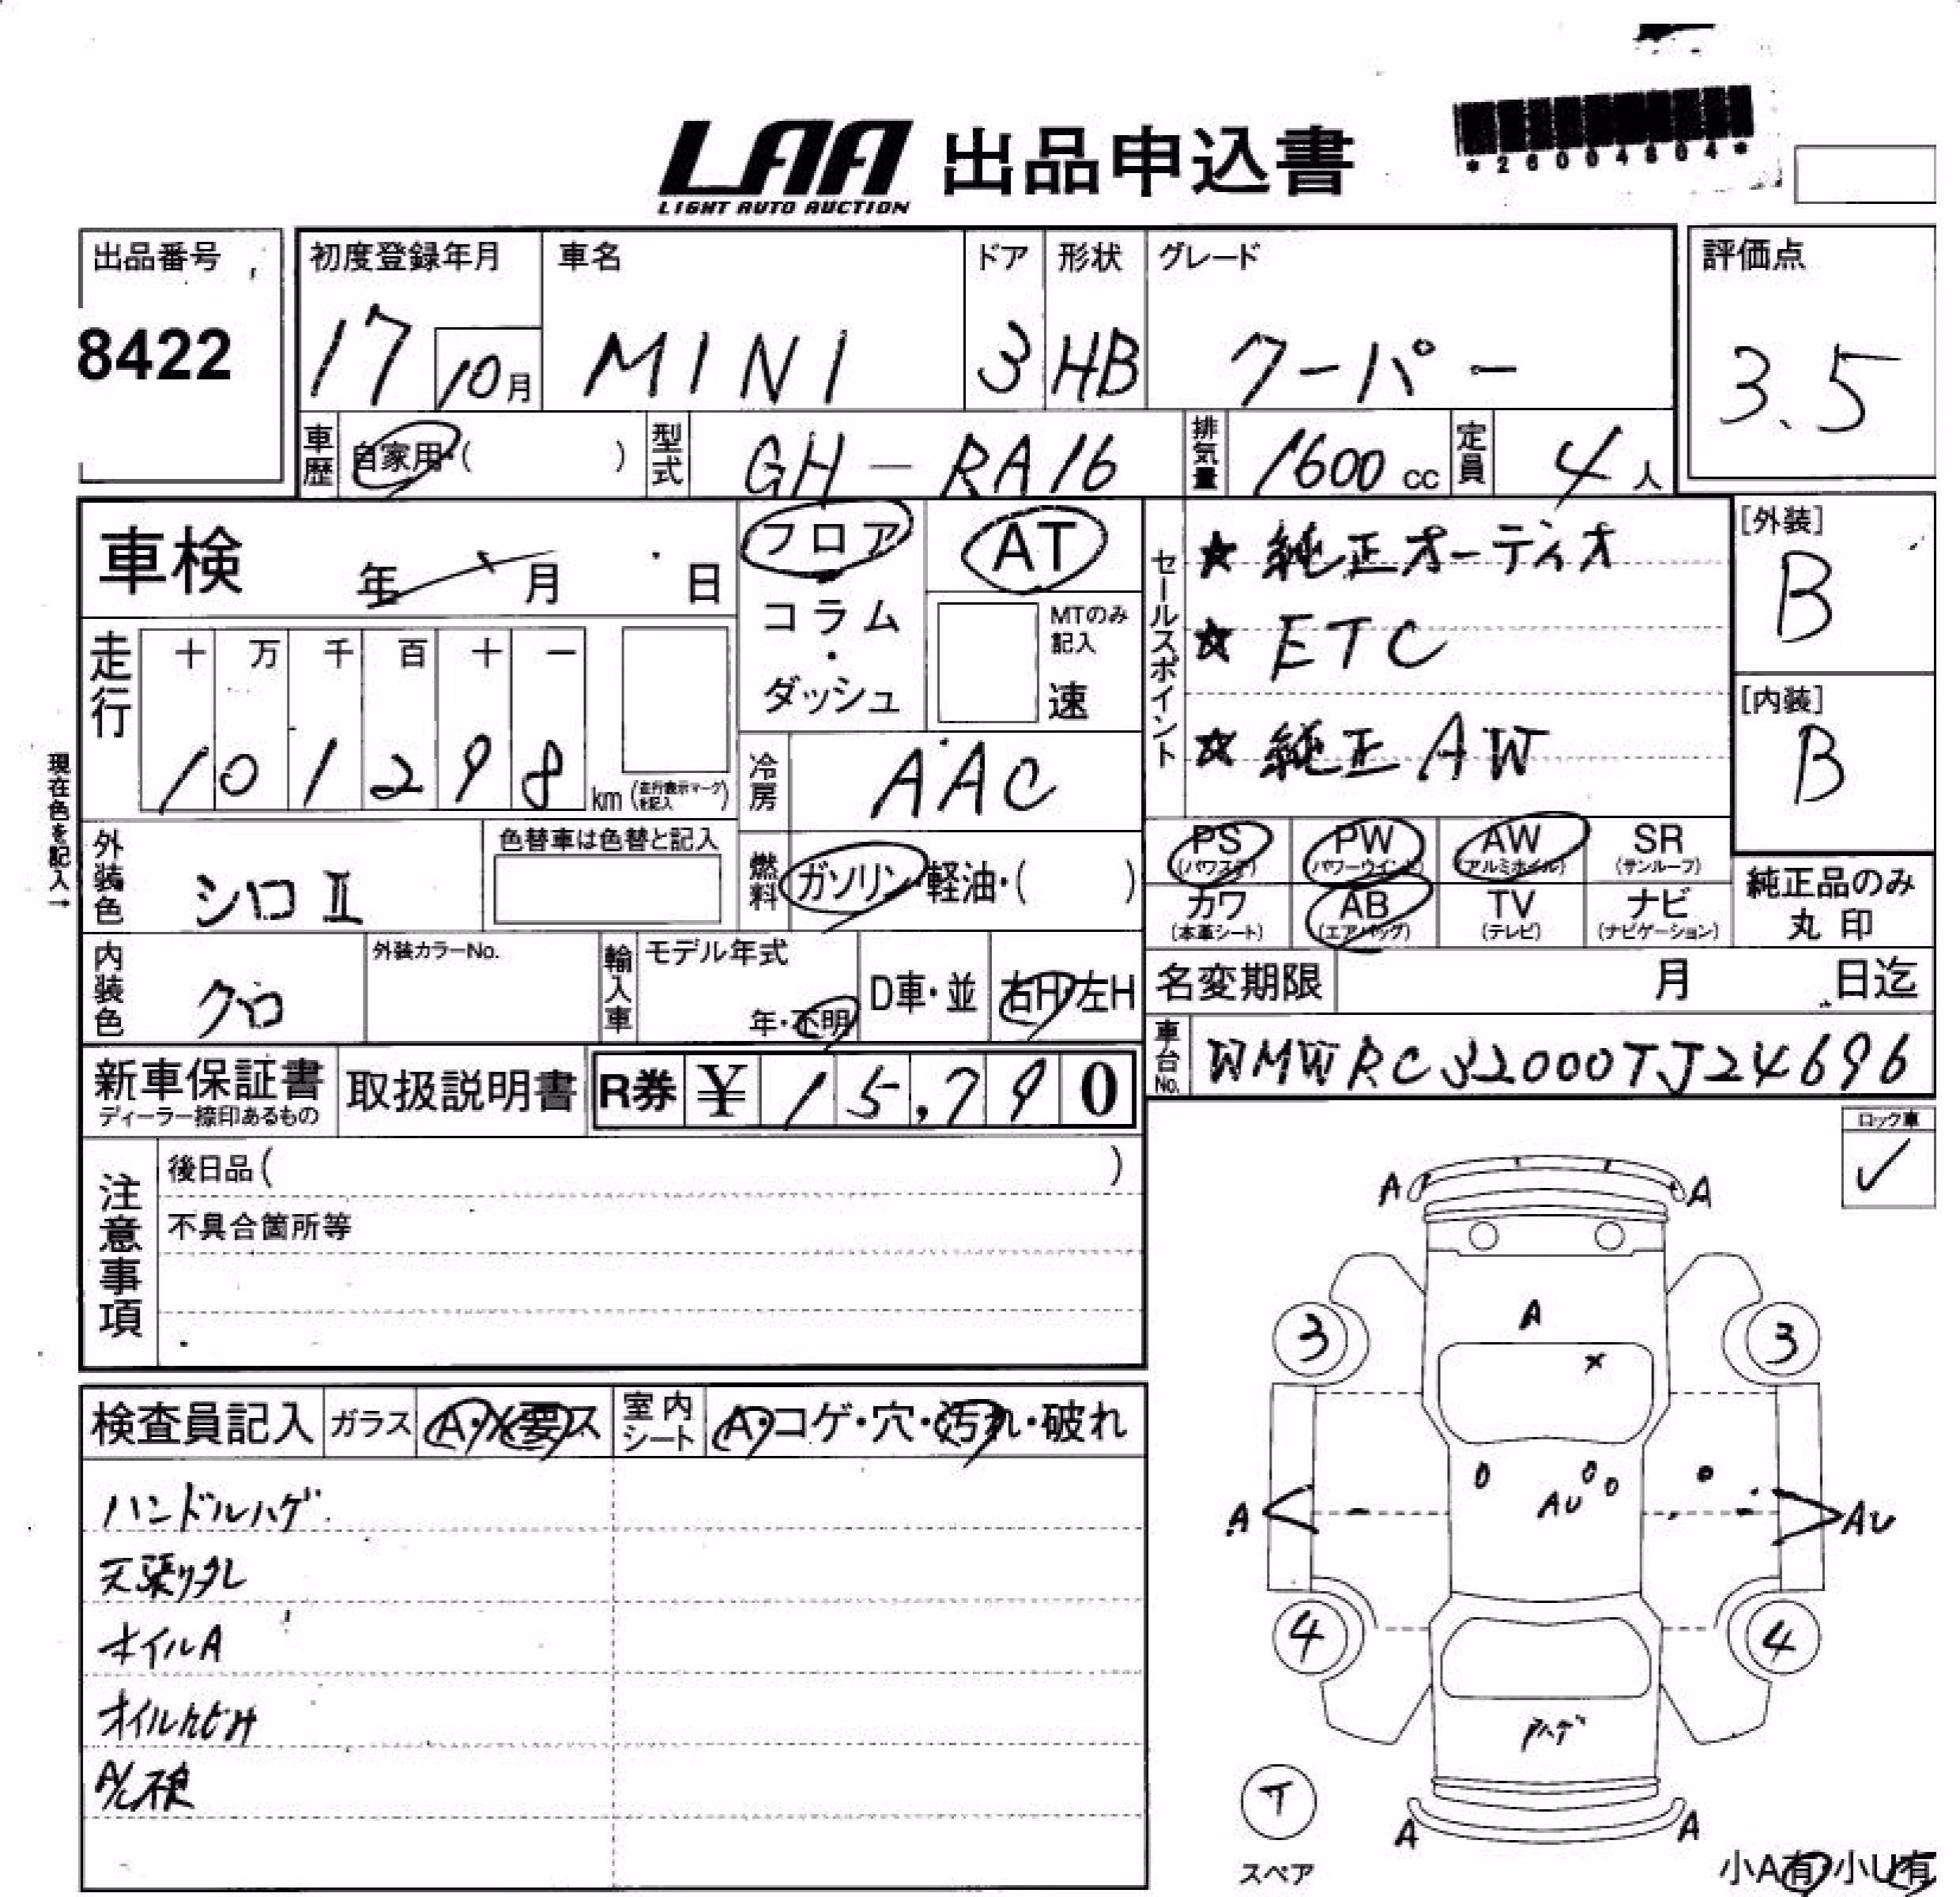 LAA 出品申込書
LIGHT AUTO AUCTION
*26004804*
出品番号
8422
初度登録年月
17 10月
車名
MINI
ドア
3
形状
HB
グレード
クーパー
評価点
3.5
車歴
自家用・( )
型式
GH-RA16
排気量
1600 cc
定員
4 人
車検 年 月 日
フロア
・
コラム
・
ダッシュ
AT
MTのみ
記入
速
セールスポイント
★ 純正オーディオ
☆ ETC
☆ 純正AW
[外装]
B
[内装]
B
走行
十 万 千 百 十 一
1 0 1 2 9 8 km (走行表示マークを記入)
冷房
AAC
現在色を記入→
外装色
シロII
色替車は色替と記入
燃料
ガソリン・軽油・( )
PS (パワステ)
PW (パワーウインド)
AW (アルミホイル)
SR (サンルーフ)
カワ (本革シート)
AB (エアバッグ)
TV (テレビ)
ナビ (ナビゲーション)
純正品のみ
丸印
内装色
クロ
外装カラーNo.
輸入車
モデル年式
年・不明
D車・並
右H・左H
名変期限 月 日迄
車台No.
WMWRC32000TJ24696
新車保証書
ディーラー捺印あるもの
取扱説明書
R券 ¥ 15,790
注意事項
後日品( )
不具合箇所等
ロック車
✓
検査員記入
ガラス
A・X要ス
室内シート
A・コゲ・穴・汚れ・破れ
ハンドルハゲ
天張りタレ
オイルA
オイルにじみ
A/C不良
A A
A
3 3
X
AU
A AU
4 4
アハゲ
T
スペア
A A
小A有 小U有